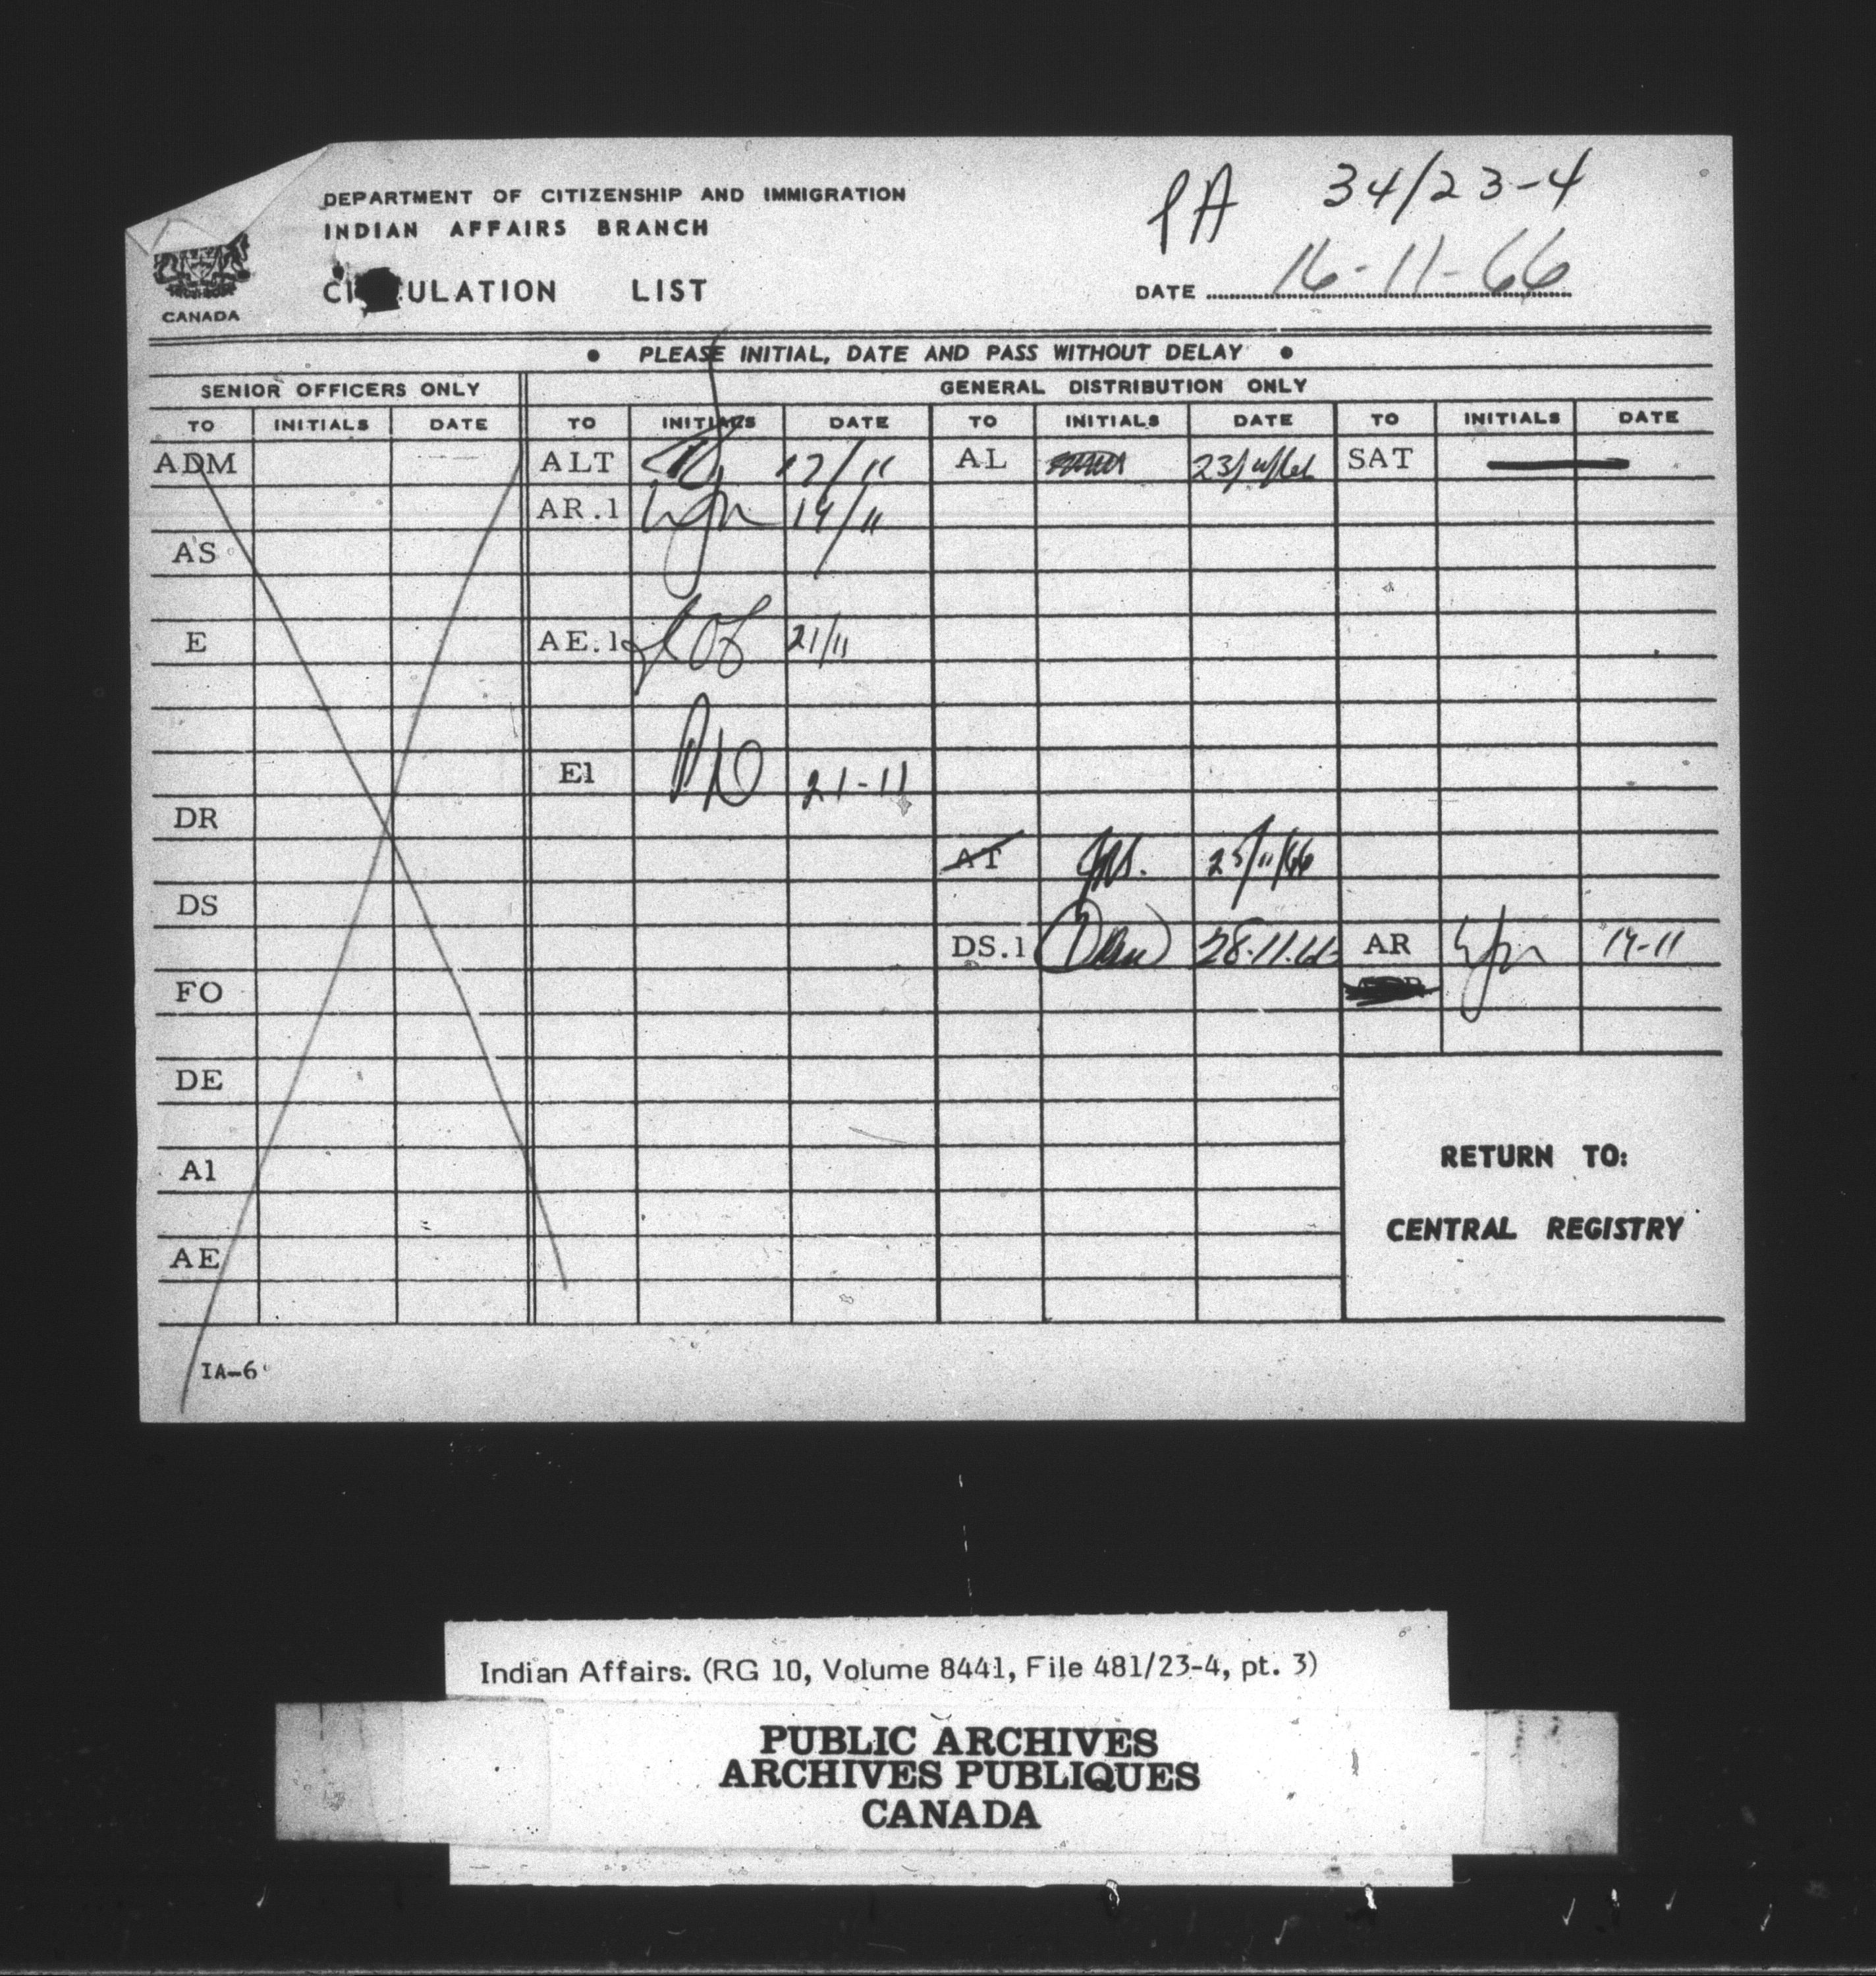 DEPARTMENT OF CITIZENSHIP AND IMMIGRATION
INDIAN AFFAIRS BRANCH
CI ULATION LIST
CANADA
PA 34/23-4
DATE 16-11-66
• PLEASE INITIAL, DATE AND PASS WITHOUT DELAY •
SENIOR OFFICERS ONLY GENERAL DISTRIBUTION ONLY
TO INITIALS DATE TO INITIALS DATE TO INITIALS DATE TO INITIALS DATE
ADM ALT 17/11 AL 23/11/66 SAT
AR.1 19/11
AS
E AE.1 21/11
E1 21-11
DR
AT 25/11/66
DS
DS.1 28.11.66 AR 19-11
FO
DE
A1
AE
RETURN TO:
CENTRAL REGISTRY
IA-6
Indian Affairs. (RG 10, Volume 8441, File 481/23-4, pt. 3)
PUBLIC ARCHIVES
ARCHIVES PUBLIQUES
CANADA